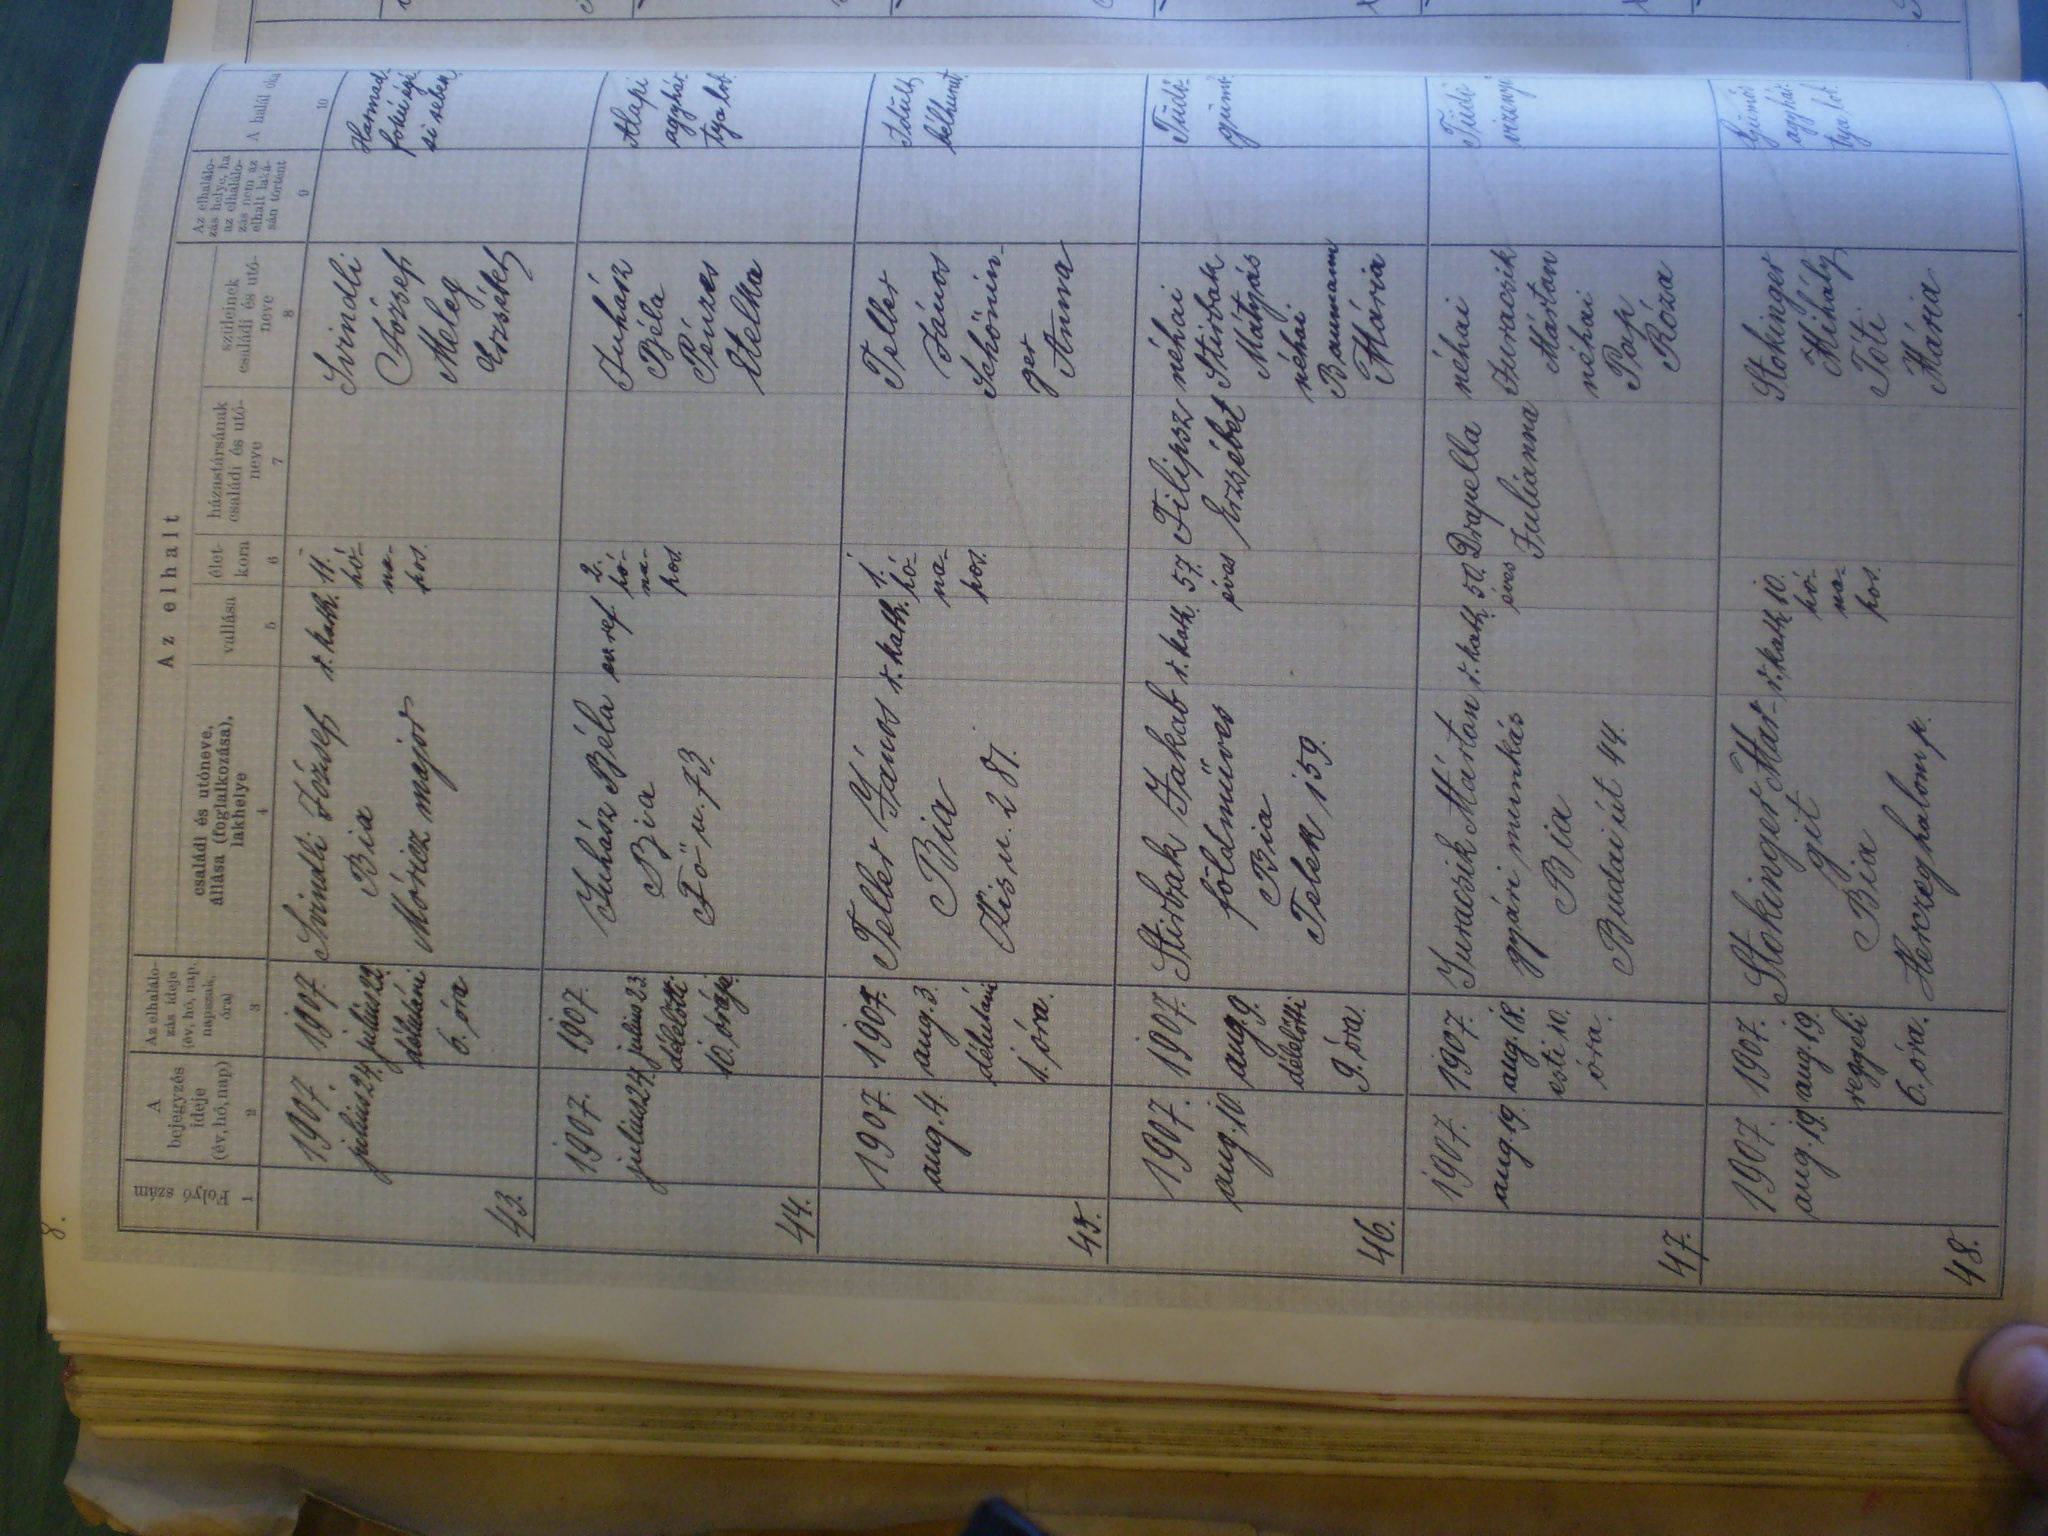 8.
Az elhalt
Folyó szám
1
A
bejegyzés
ideje
(év, hó, nap)
2
Az elhalálo-
zás ideje
(év, hó, nap,
napszak,
óra)
3
családi és utóneve,
állása (foglalkozása),
lakhelye
4
vallása
5
élet-
kora
6
házastársának
családi és utó-
neve
7
szüleinek
családi és utó-
neve
8
Az elhalálo-
zás helye, ha
az elhalálo-
zás nem az
elhalt laká-
sán történt
9
A halál oka
10
43.
1907.
julius 24.
1907.
julius 22.
délutáni
6. óra
Svindli József
Bia
Móricz major
r. kath.
11.
hó-
na-
pos.
Svindli
József
Meleg
Erzsébet
Harmad-
fokú égé-
si sebek
44.
1907.
julius 24.
1907.
julius 23.
délelőtti
10. órája.
Juhász Béla
Bia
Fő u. 73.
ev. ref.
2.
hó-
na-
pos.
Juhász
Béla
Pénzes
Etelka
Alapi
agyhár-
tya lob.
45.
1907.
aug. 4.
1907.
aug. 3.
délutáni
1. óra.
Teller János
Bia
Kis u. 281.
r. kath.
1.
hó-
na-
pos.
Teller
János
Schönin-
ger
Anna
Idült
bélhurut.
46.
1907.
aug. 10.
1907.
aug. 9.
délelőtti
9. óra.
Stirbak Jakab
földműves
Bia
Telek 159.
r. kath.
57.
éves
Filipsz
Erzsébet
néhai
Stirbak
Mátyás
néhai
Baumann
Mária
Tüdő-
gümő.
47.
1907.
aug. 19.
1907.
aug. 18.
esti 10.
óra.
Juracsik Márton
gyári munkás
Bia
Budai út 44.
r. kath.
50.
éves
Drapella
Julianna
néhai
Juracsik
Márton
néhai
Pap
Róza
Tüdő
vizenyő
48.
1907.
aug. 19.
1907.
aug. 19.
reggeli
6. óra.
Stokinger Mar-
git
Bia
Herczeghalom p.
r. kath.
10.
hó-
na-
pos.
Stokinger
Mihály
Tóti
Mária
Gümős
agyhár-
tya lob.